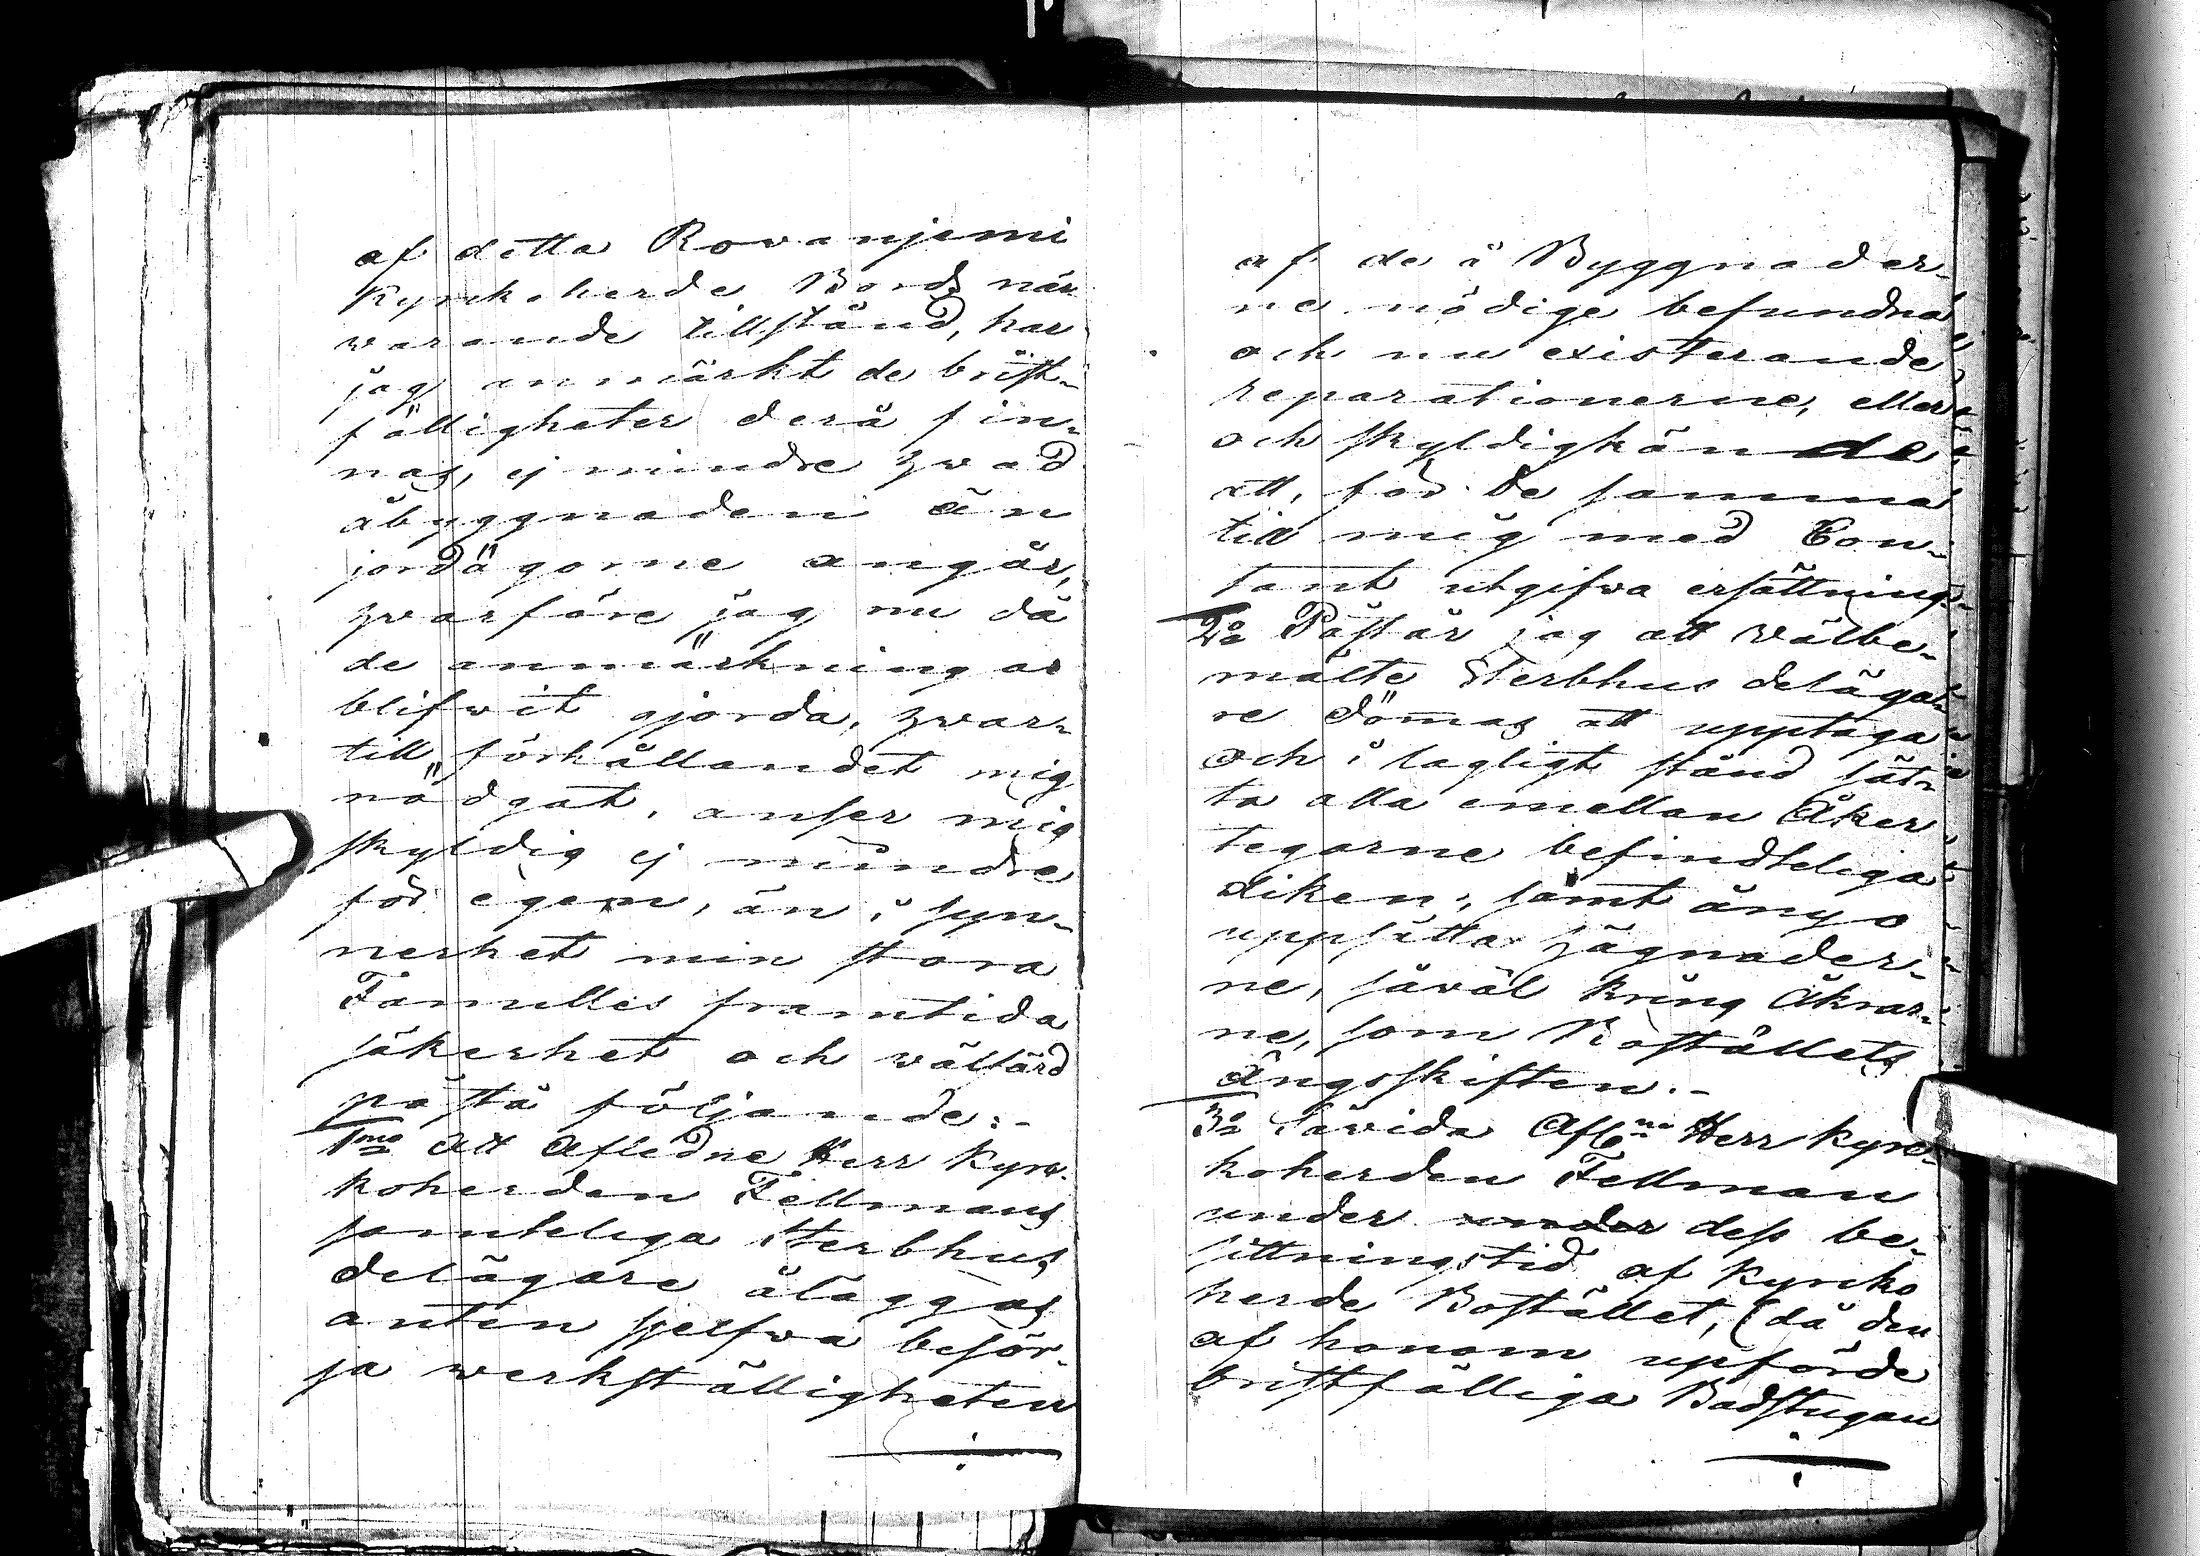 af detta Rowanjemi
Kyrckoherde Bords när
warande tillstånd, har
jag anmärkt de brist-
fälligheter derå fin-
nas, ej mindre hwad
åbyggnaden än
jordägorne angår,
hwarföre jag nu då
de anmärkningar
blifwit gjorda, hwar-
till förhållandet mig
nödgat, anser mig
skyldig ej mindre
för egen, än i syn-
nerhet min stora
Famillies framtida
säkerhet och wälfärd
påstå följande:-
1mo Att Aflidne Herr Kyrc-
koherden Fellmans
samteliga Sterbhus
delägare åläggas
anten sjelfwa besör-
ja werkställigheten
af de å Byggnader-
ne nödige befundna
och nu existerande
reparationerne, eller
och skyldigkände
att, för de samma
till mig med Con-
tant utgifwa ersättning.
2o Påstår jag att wälbe-
mälte Sterbhus deläga-
re dömas att upptaga
och i lagligt stånd sät-
ta alla emellan Åker
tegarne befindteliga
diken, samt ånyo
uppsätta hägnader-
ne, såwäl kring Åkrar-
ne, som Boställets
Ängsskiften.-
3o Såvida Aflne Herr Kyrc-
koherden Fellman
under under dess be-
sittningstid af Kyrcko
herde Bostället, (då den
af honom upförde
bristfälliga Badstugan